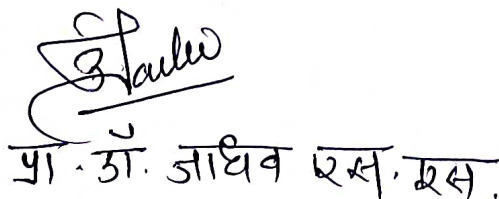 प्रा. डॉ. जाधव एस. एस.